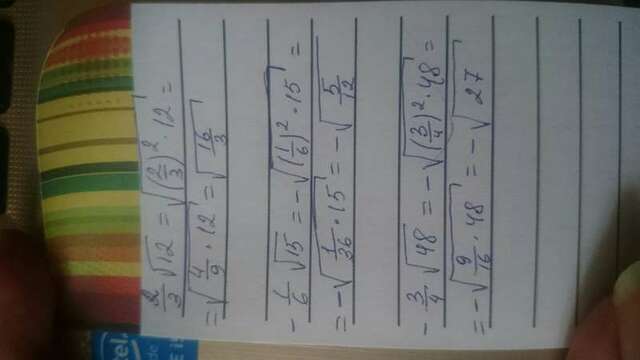 2/3 √12 = √((2/3)² · 12) =
= √(4/9 · 12) = √(16/3)
- 1/6 √15 = -√((1/6)² · 15) =
= -√(1/36 · 15) = -√(5/12)
- 3/4 √48 = -√((3/4)² · 48) =
= -√(9/16 · 48) = -√27